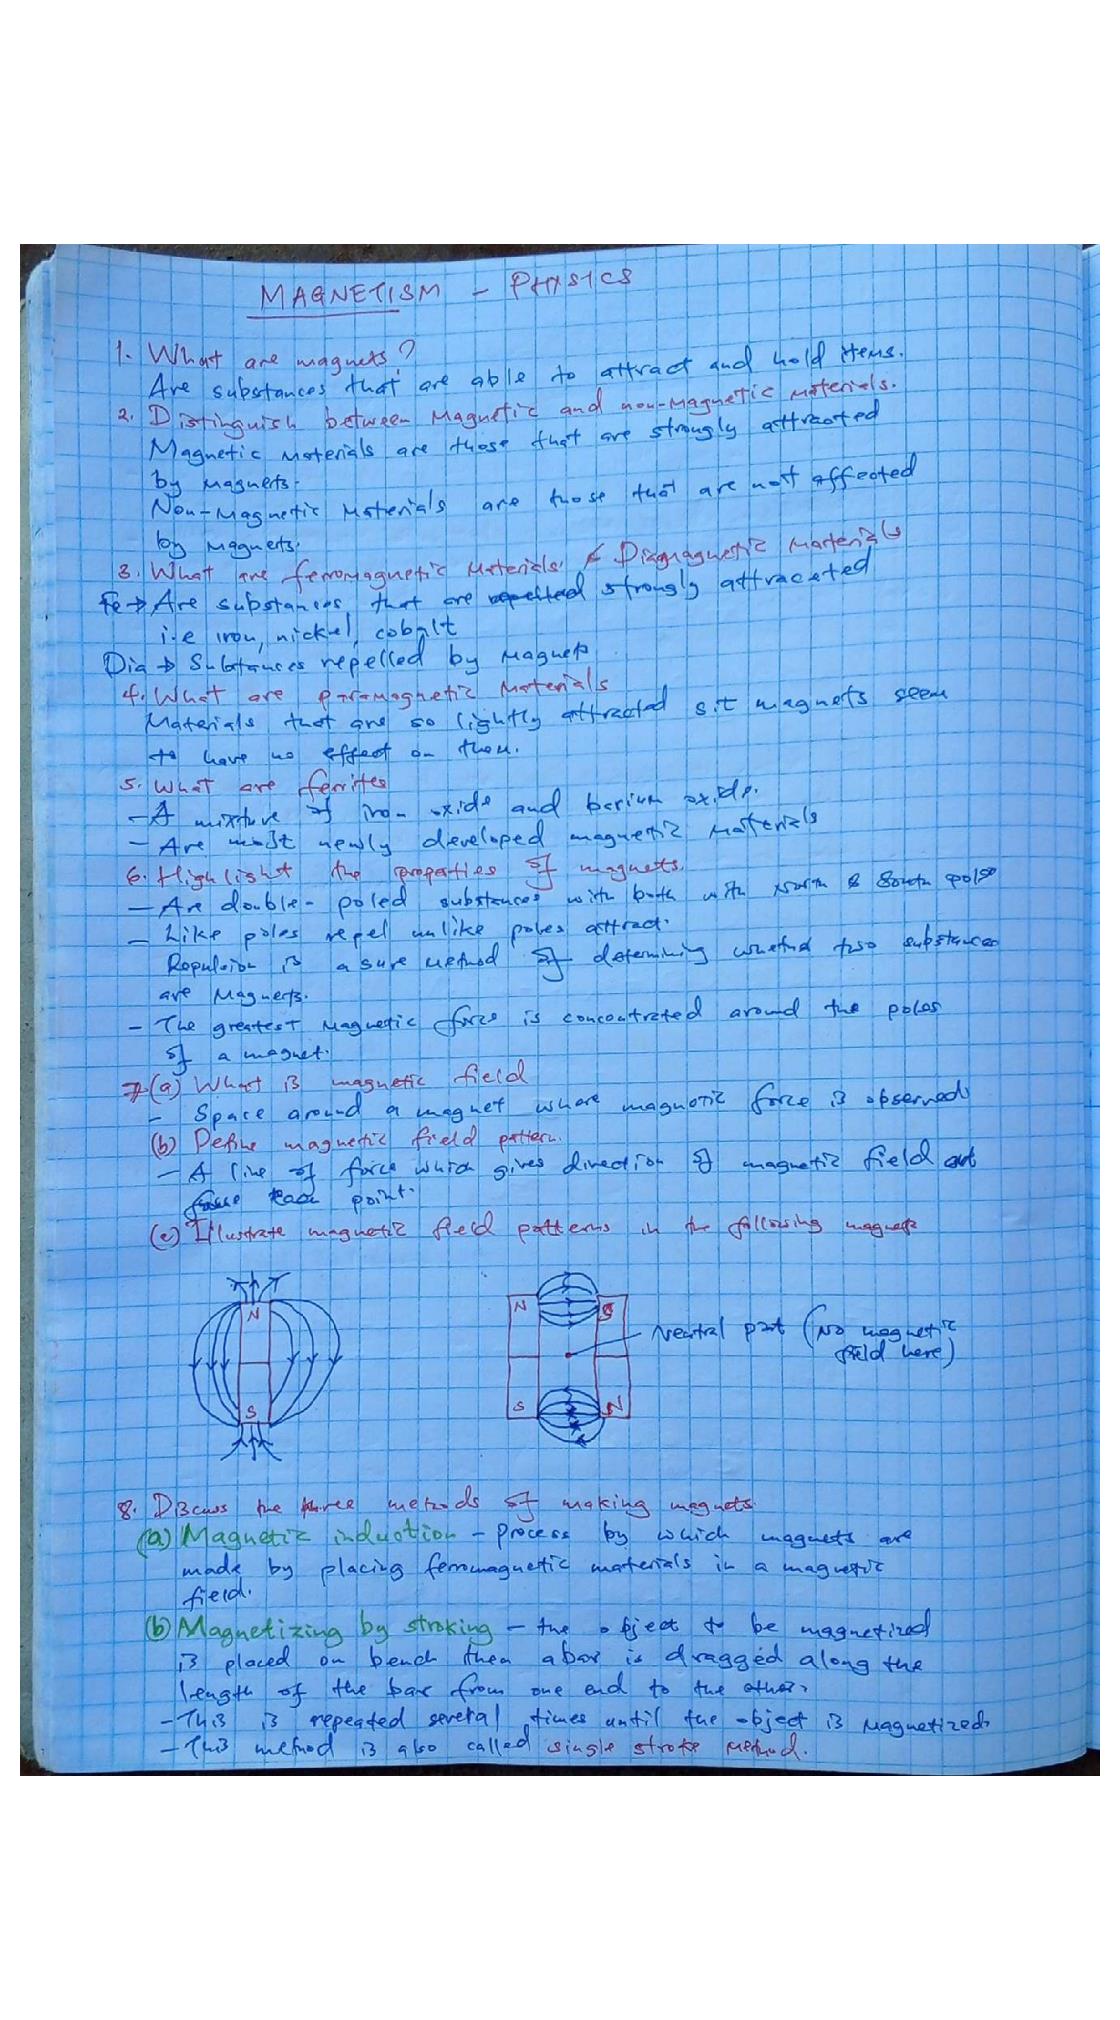 MAGNETISM - PHYSICS
1. What are magnets?
Are substances that are able to attract and hold items.
2. Distinguish between Magnetic and non-magnetic materials.
Magnetic materials are those that are strongly attracted
by magnets.
Non-Magnetic Materials are those that are not affected
by magnets.
3. What are ferromagnetic materials & Diamagnetic materials
Fe → Are substances that are repelled strongly attracted
i.e iron, nickel, cobalt
Dia → Substances repelled by magnets
4. What are paramagnetic Materials
Materials that are so lightly attracted s.t magnets seem
to have no effect on them.
5. What are ferrites
- A mixture of iron oxide and barium oxide.
- Are most newly developed magnetic materials
6. Highlight the properties of magnets.
- Are double-poled substances with both with north & South pole
- Like poles repel unlike poles attract.
Repulsion is a sure method of determining whether two substances
are Magnets.
- The greatest magnetic force is concentrated around the poles
of a magnet.
7(a) What is magnetic field
- Space around a magnet where magnetic force is observed
(b) Define magnetic field pattern.
- A line of force which gives direction of magnetic field at
each point.
(c) Illustrate magnetic field patterns in the following magnets
N
S
N S
S N
Neutral part (No magnetic
field here)
8. Discuss the three methods of making magnets
(a) Magnetic induction - process by which magnets are
made by placing ferromagnetic materials in a magnetic
field.
(b) Magnetizing by stroking - the object to be magnetized
is placed on bench then a bar is dragged along the
length of the bar from one end to the other.
- This is repeated several times until the object is magnetized.
- This method is also called single stroke method.